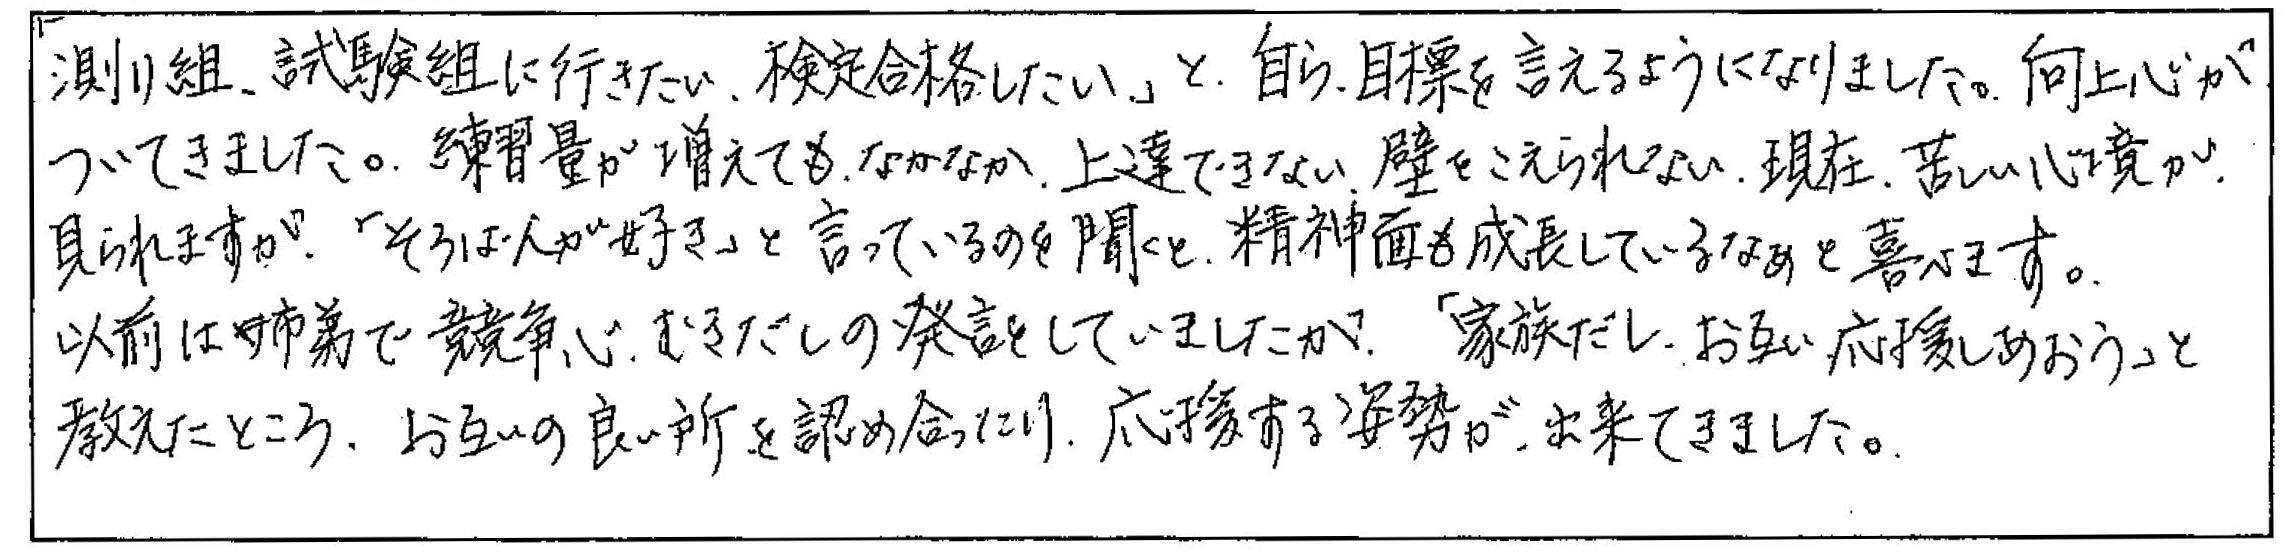 「測り組、試験組に行きたい、検定合格したい。」と、自ら、目標を言えるようになりました。向上心が
ついてきました。練習量が増えても、なかなか、上達できない、壁をこえられない、現在、苦しい心境が、
見られますが、「そろばんが好き」と言っているのを聞くと、精神面も成長しているなあと喜べます。
以前は姉弟で競争心、むきだしの発言をしていましたが、「家族だし、お互い、応援しあおう」と
教えたところ、お互いの良い所を認め合ったり、応援する姿勢が、出来てきました。